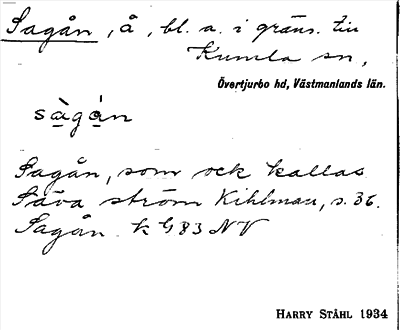 Sagån, å, bl. a. i gräns. till
Kumla sn,
Övertjurbo hd, Västmanlands län.
sàgán
Sagån, som ock kallas
Säva ström Kihlman, s. 36.
Sagån k G 83 NV
HARRY STÅHL 1934